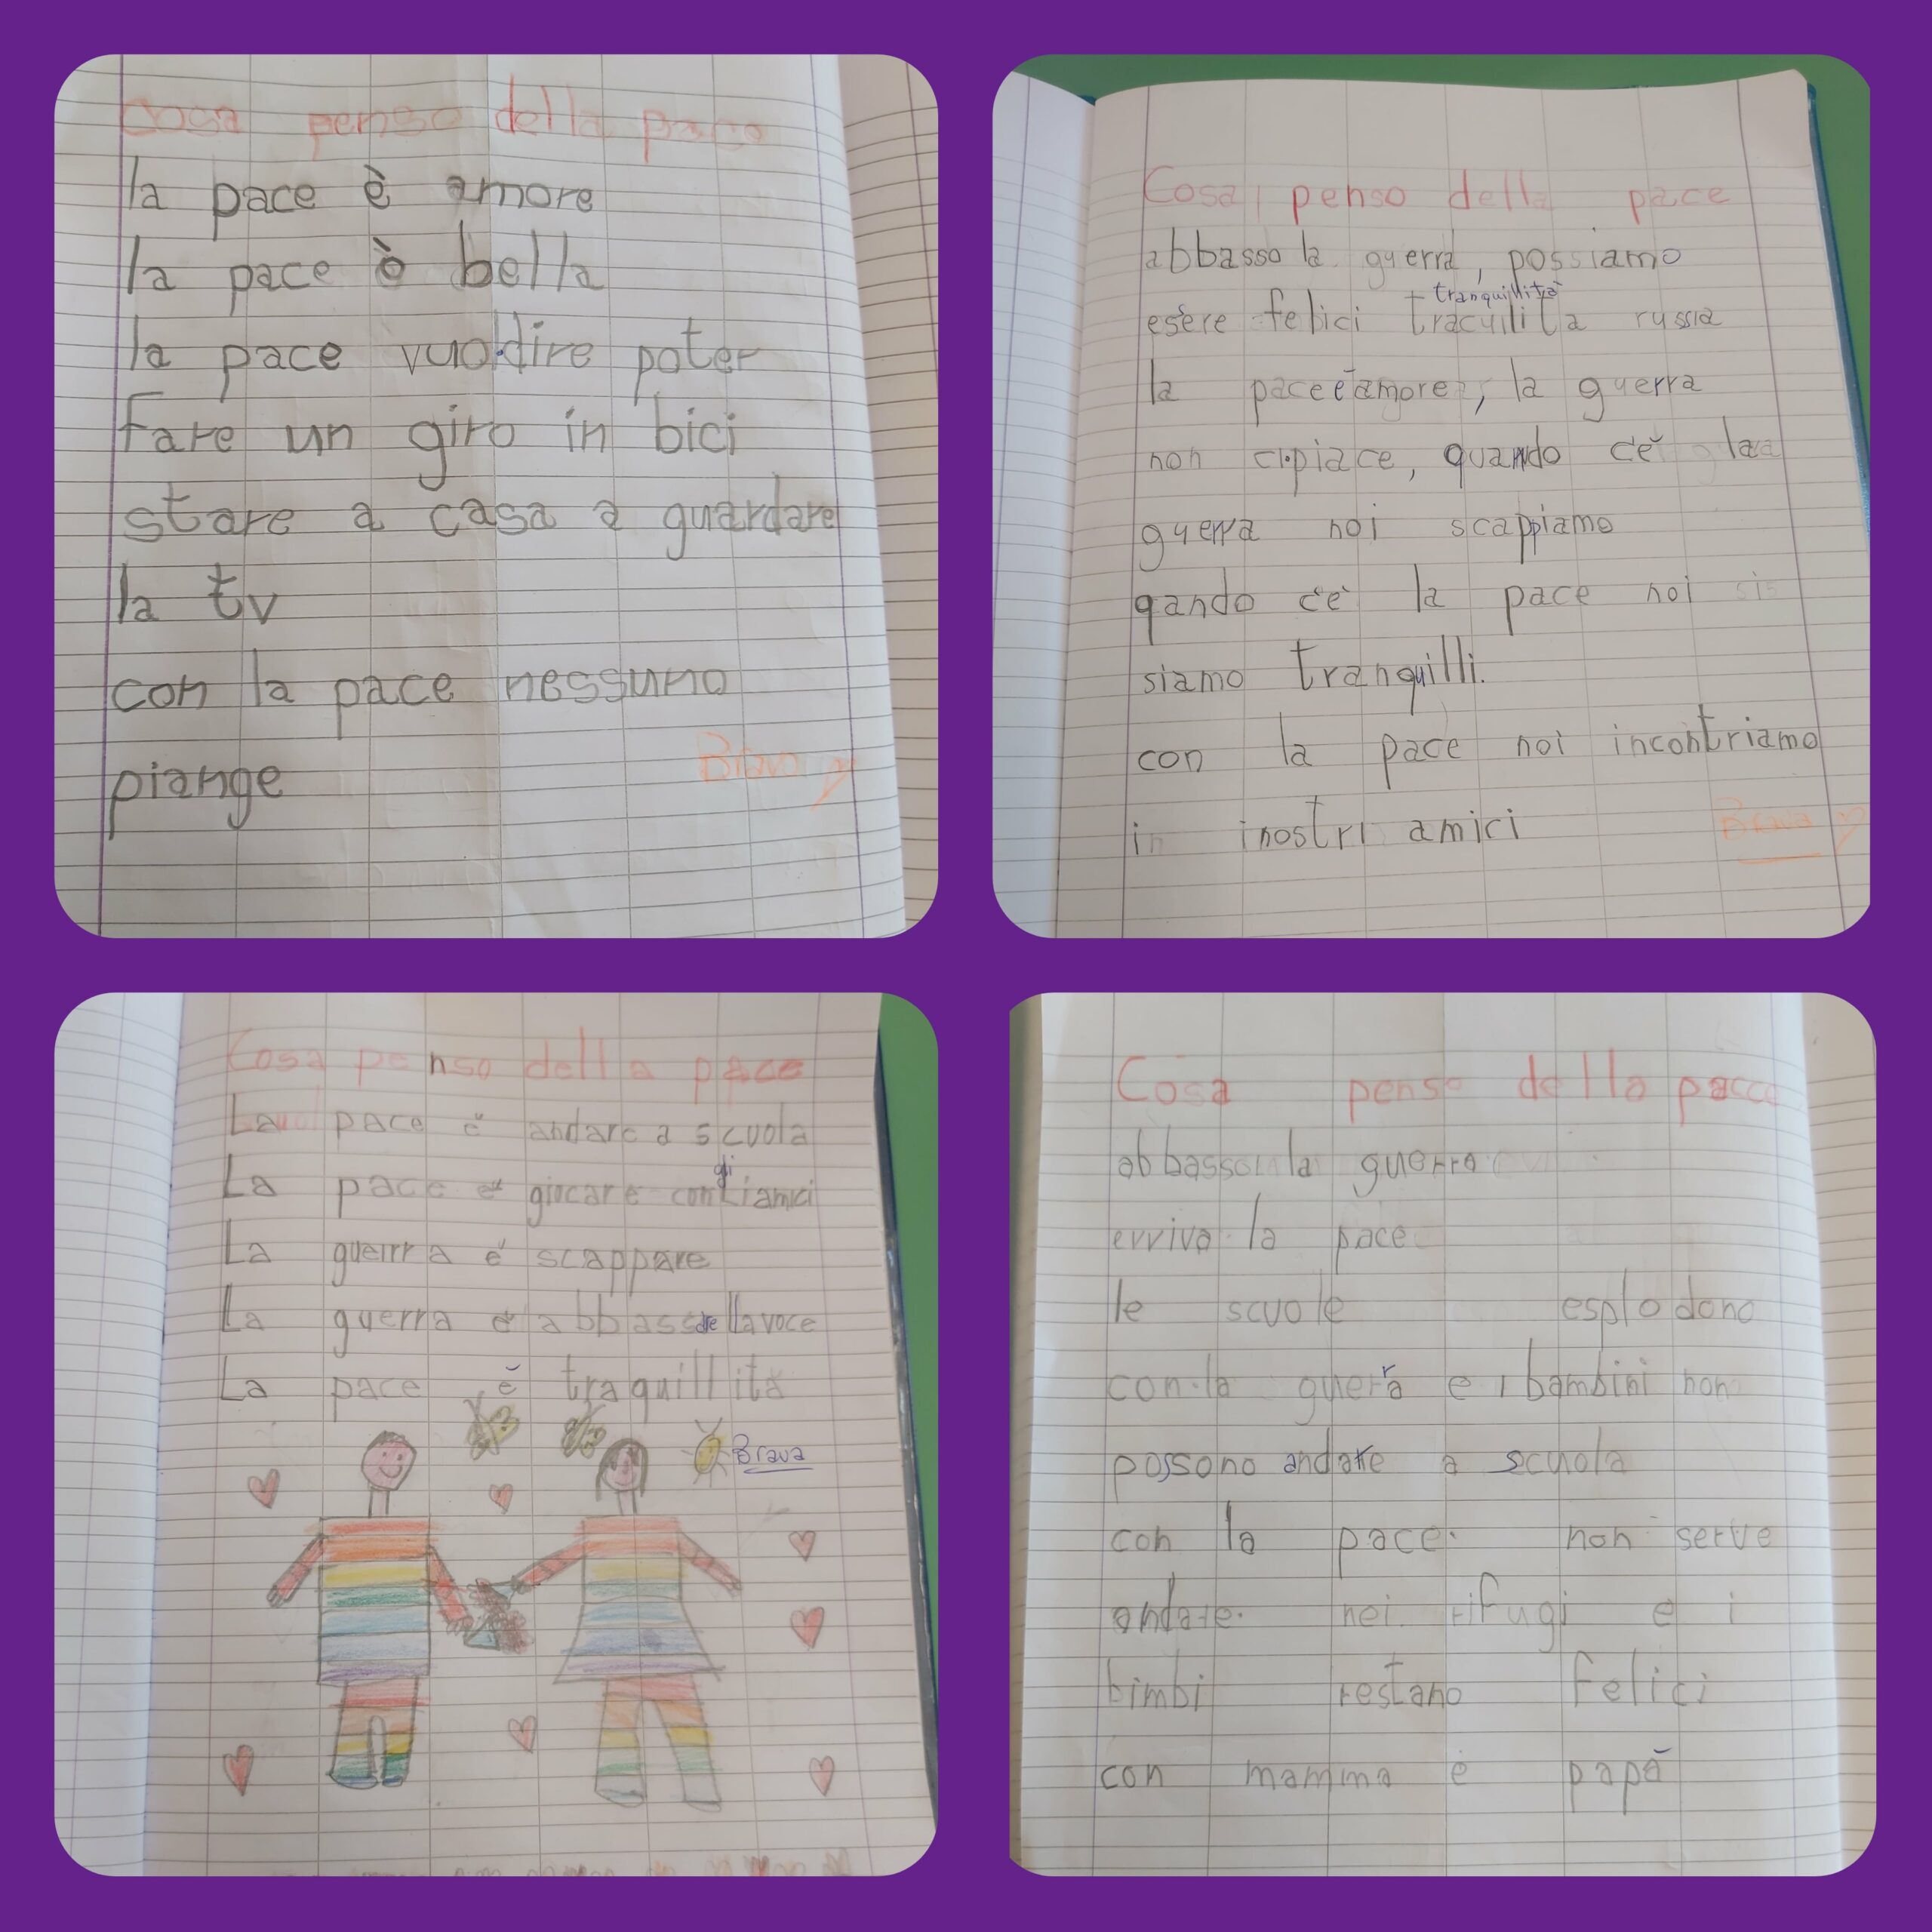 Cosa penso della pace
la pace è amore
la pace è bella
la pace vuoldire poter
fare un giro in bici
stare a casa a guardare
la tv
con la pace nessuno
piange
Cosa penso della pace
abbasso la guerra, possiamo
esere felici tracuilita russia
tranquillità
la paceèamore, la guerra
non cipiace, quando cè la
guerra noi scappiamo
qando cè la pace noi
siamo tranquilli.
con la pace noi incontriamo
in inostri amici
Brava
Cosa penso della pace
La pace è andare a scuola
gli
La pace è giocare con amici
La guerra è scappare
La guerra è abbassare la voce
La pace è traquillità
Brava
Cosa penso della pacce
abbasso la guerra
evviva la pace
le scuole esplodono
con la guerra e i bambini non
possono andare a scuola
con la pace non serve
andare nei rifugi e i
bimbi restano felici
con mamma e papà